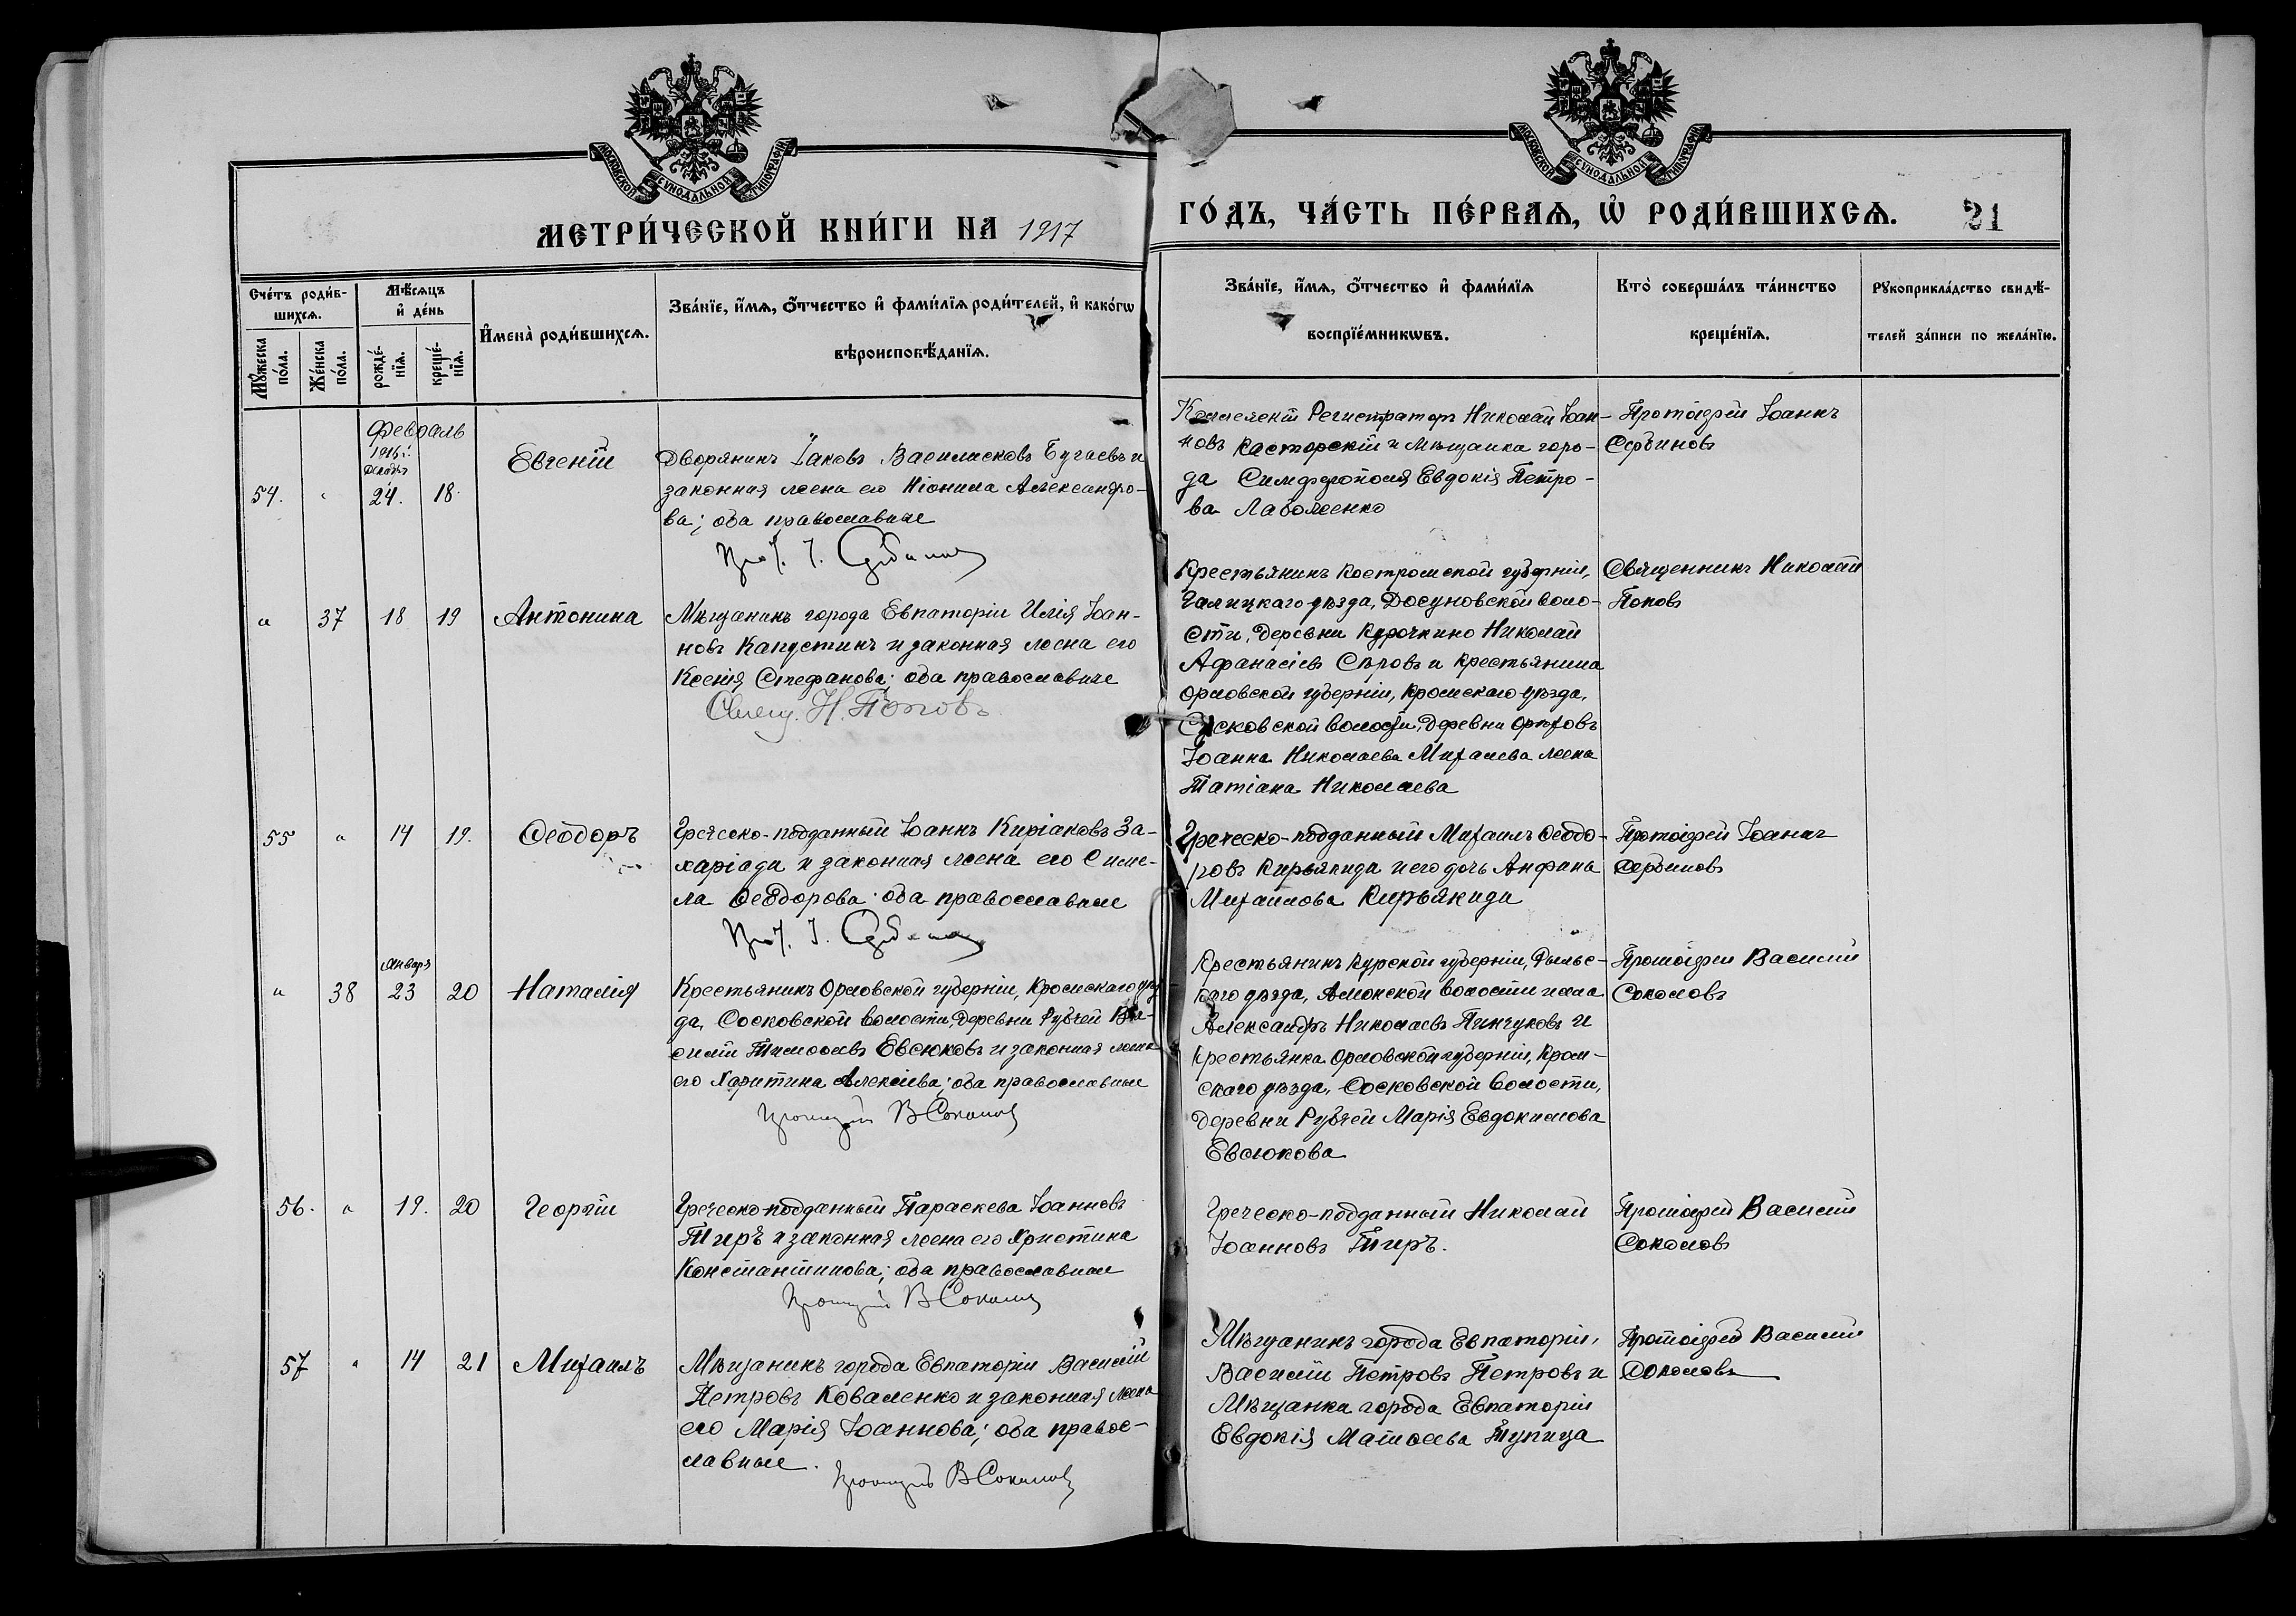 МОСКОВСКОЙ СѴНОДАЛЬНОЙ ТИПОГРАФІИ
МОСКОВСКОЙ СѴНОДАЛЬНОЙ ТИПОГРАФІИ
МЕТРИ́ЧЕСКОЙ КНИ́ГИ НА 1917
ГО́ДЪ, ЧА́СТЬ ПЕ́РВАѦ, Ѡ҆ РОДИ́ВШИХСѦ. 21
Сче́тъ роди́в-
шихсѧ.
Мꙋ́жеска по́ла.
Же́нска по́ла.
Мѣ́сѧцъ
и҆ де́нь
рожде́-
нїѧ.
креще́-
нїѧ.
И҆мена̀ роди́вшихсѧ.
Зва́нїе, и҆́мѧ, ѻ҆́тчество и҆ фами́лїѧ роди́телей, и҆ како́гѡ
вѣроисповѣ́данїѧ.
Зва́нїе, и҆́мѧ, ѻ҆́тчество и҆ фами́лїѧ
воспрїе́мникѡвъ.
Кто̀ соверша́лъ та́инство
креще́нїѧ.
Рꙋкоприкла́дство свидѣ́-
телей за́писи по жела́нїю.
Февраль
1916 г.
Декабь
54. " 24. 18.
Евгеній
Дворянинъ Іаковъ Василисковъ Бугаевъ и
законная жена его Ніонила Александро-
ва; оба православные
Прот. І. Сербиновъ
Коллежскій Регистраторъ Николай Іоан-
новъ Касторскій и Мѣщанка горо-
да Симферополя Евдокія Петро-
ва Лабоженко
Протоіерей Іоаннъ
Сербиновъ
" 37 18 19 Антонина
Мѣщанинъ города Евпаторіи Илія Іоан-
новъ Капустинъ и законная жена его
Ксенія Стефанова; оба православные
Свящ. Н. Поповъ
Крестьянинъ Костромской губерніи,
Галицкаго уѣзда, Досуновской воло-
сти, деревни Курочкино Николай
Афанасіевъ Сѣровъ и крестьянина
Орловской губерніи, Кромскаго уѣзда,
Сосковской волости, деревни Орѣховъ
Іоанна Николаева Михалева жена
Татіана Николаева
Священникъ Николай
Поповъ
55 " 14 19. Ѳеодоръ
Греческо-подданный Іоаннъ Киріаковъ За-
харіади и законная жена его Симе-
ла Ѳеодорова; оба православные
Прот. І. Сербиновъ
Греческо-подданный Михаилъ Ѳеодо-
ровъ Кирьякиди и его дочь Анфина
Михаилова Кирьякиди
Протоіерей Іоаннъ
Сербиновъ
Января
" 38 23 20 Наталія
Крестьянинъ Орловской губерніи, Кромскаго уѣз-
да, Сосковской волости, деревни Рубчей Ва-
силій Тимоѳеевъ Евсюковъ и законная жена
его Харитина Алексіева; оба православные
Протоіерей В Соколовъ
Крестьянинъ Курской губерніи, Рыльс-
каго уѣзда, волости села
Александръ Николаевъ Пинчуковъ и
крестьянка Орловской губерніи, Кром-
скаго уѣзда, Сосковской волости,
деревни Рубчей Марія Евдокимова
Евсюкова
Протоіерей Василій
Соколовъ
56. " 19. 20 Георгій
Греческо-подданный Параскева Іоанновъ
Тиръ и законная жена его Христина
Константинова; оба православные
Протоіерей В Соколовъ
Греческо-подданный Николай
Іоанновъ Тиръ.
Протоіерей Василій
Соколовъ
57 " 14 21 Михаилъ
Мѣщанинъ города Евпаторіи Василій
Петровъ Коваленко и законная жена
его Марія Іоаннова; оба правос-
лавные.
Протоіерей В Соколовъ
Мѣщанинъ города Евпаторіи,
Василій Петровъ Петровъ и
Мѣщанка города Евпаторіи
Евдокія Матѳеева Тупица
Протоіерей Василій
Соколовъ